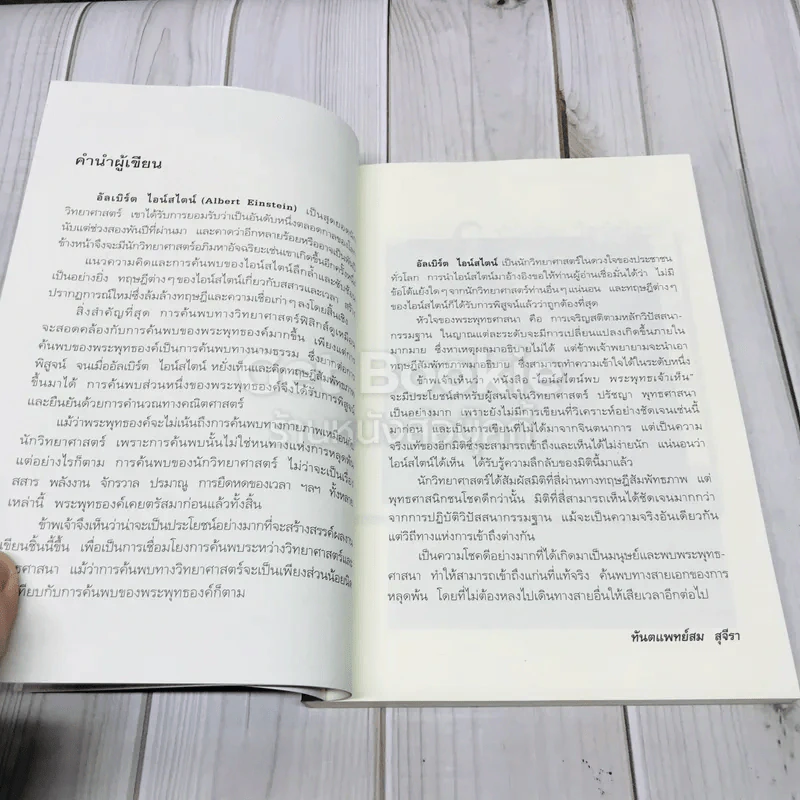 คำนำผู้เขียน
อัลเบิร์ต ไอน์สไตน์ (Albert Einstein) เป็นสุดยอด
วิทยาศาสตร์ เขาได้รับการยอมรับว่าเป็นอันดับหนึ่งตลอดกาล
นับแต่ช่วงสองพันปีที่ผ่านมา และคาดว่าอีกหลายร้อยหรืออาจเป็น
ข้างหน้าจึงจะมีนักวิทยาศาสตร์อภิมหาอัจฉริยะเช่นเขาเกิดขึ้นอีกครั้ง
แนวความคิดและการค้นพบของไอน์สไตน์ลึกล้ำและ
เป็นอย่างยิ่ง ทฤษฎีต่างๆของไอน์สไตน์เกี่ยวกับสสารและเวลา
ปรากฏการณ์ใหม่ซึ่งล้มล้างทฤษฎีและความเชื่อเก่าๆลงโดยสิ้นเชิง
สิ่งสำคัญที่สุด การค้นพบทางวิทยาศาสตร์ฟิสิกส์ดูเหมือน
จะสอดคล้องกับการค้นพบของพระพุทธองค์มากขึ้น เพียงแต่
ค้นพบของพระพุทธองค์เป็นการค้นพบทางนามธรรม ซึ่งยากต่อการ
พิสูจน์ จนเมื่ออัลเบิร์ต ไอน์สไตน์ หยั่งเห็นและคิดทฤษฎีสัมพัทธภาพ
ขึ้นมาได้ การค้นพบส่วนหนึ่งของพระพุทธองค์จึงได้รับการพิสูจน์
และยืนยันด้วยการคำนวณทางคณิตศาสตร์
แม้ว่าพระพุทธองค์จะไม่เน้นถึงการค้นพบทางกายภาพเหมือน
นักวิทยาศาสตร์ เพราะการค้นพบนั้นไม่ใช่หนทางแห่งการหลุดพ้น
แต่อย่างไรก็ตาม การค้นพบของนักวิทยาศาสตร์ ไม่ว่าจะเป็นเรื่อง
สสาร พลังงาน จักรวาล ปรมาณู การยืดหดของเวลา ฯลฯ ทั้งหลาย
เหล่านี้ พระพุทธองค์เคยตรัสมาก่อนแล้วทั้งสิ้น
ข้าพเจ้าจึงเห็นว่าน่าจะเป็นประโยชน์อย่างมากที่จะสร้างสรรค์ผลงาน
เขียนชิ้นนี้ขึ้น เพื่อเป็นการเชื่อมโยงการค้นพบระหว่างวิทยาศาสตร์และ
ศาสนา แม้ว่าการค้นพบทางวิทยาศาสตร์จะเป็นเพียงส่วนน้อยนิด
เทียบกับการค้นพบของพระพุทธองค์ก็ตาม
อัลเบิร์ต ไอน์สไตน์ เป็นนักวิทยาศาสตร์ในดวงใจของประชาชน
ทั่วโลก การนำไอน์สไตน์มาอ้างอิงขอให้ท่านผู้อ่านเชื่อมั่นได้ว่า ไม่มี
ข้อโต้แย้งใดๆจากนักวิทยาศาสตร์ท่านอื่นๆแน่นอน และทฤษฎีต่างๆ
ของไอน์สไตน์ก็ได้รับการพิสูจน์แล้วว่าถูกต้องที่สุด
หัวใจของพระพุทธศาสนา คือ การเจริญสติตามหลักวิปัสสนา-
กรรมฐาน ในญาณแต่ละระดับจะมีการเปลี่ยนแปลงเกิดขึ้นภายใน
มากมาย ซึ่งหาเหตุผลมาอธิบายไม่ได้ แต่ข้าพเจ้าพยายามจะนำเอา
ทฤษฎีสัมพัทธภาพมาอธิบาย ซึ่งสามารถทำความเข้าใจได้ในระดับหนึ่ง
ข้าพเจ้าเห็นว่า หนังสือ "ไอน์สไตน์พบ พระพุทธเจ้าเห็น"
จะมีประโยชน์สำหรับผู้สนใจในวิทยาศาสตร์ ปรัชญา พุทธศาสนา
เป็นอย่างมาก เพราะยังไม่มีการเขียนที่วิเคราะห์อย่างชัดเจนเช่นนี้
มาก่อน และเป็นการเขียนที่ไม่ได้มาจากจินตนาการ แต่เป็นความ
จริงแท้ของอีกมิติซึ่งจะสามารถเข้าถึงและเห็นได้ไม่ง่ายนัก แน่นอนว่า
ไอน์สไตน์ได้เห็น ได้รับรู้ความลึกลับของมิตินี้มาแล้ว
นักวิทยาศาสตร์ได้สัมผัสมิติที่สี่ผ่านทางทฤษฎีสัมพัทธภาพ แต่
พุทธศาสนิกชนโชคดีกว่านั้น มิติที่สี่สามารถเห็นได้ชัดเจนมากกว่า
จากการปฏิบัติวิปัสสนากรรมฐาน แม้จะเป็นความจริงอันเดียวกัน
แต่วิถีทางแห่งการเข้าถึงต่างกัน
เป็นความโชคดีอย่างมากที่ได้เกิดมาเป็นมนุษย์และพบพระพุทธ-
ศาสนา ทำให้สามารถเข้าถึงแก่นที่แท้จริง ค้นพบทางสายเอกของการ
หลุดพ้น โดยที่ไม่ต้องหลงไปเดินทางสายอื่นให้เสียเวลาอีกต่อไป
ทันตแพทย์สม สุจีรา